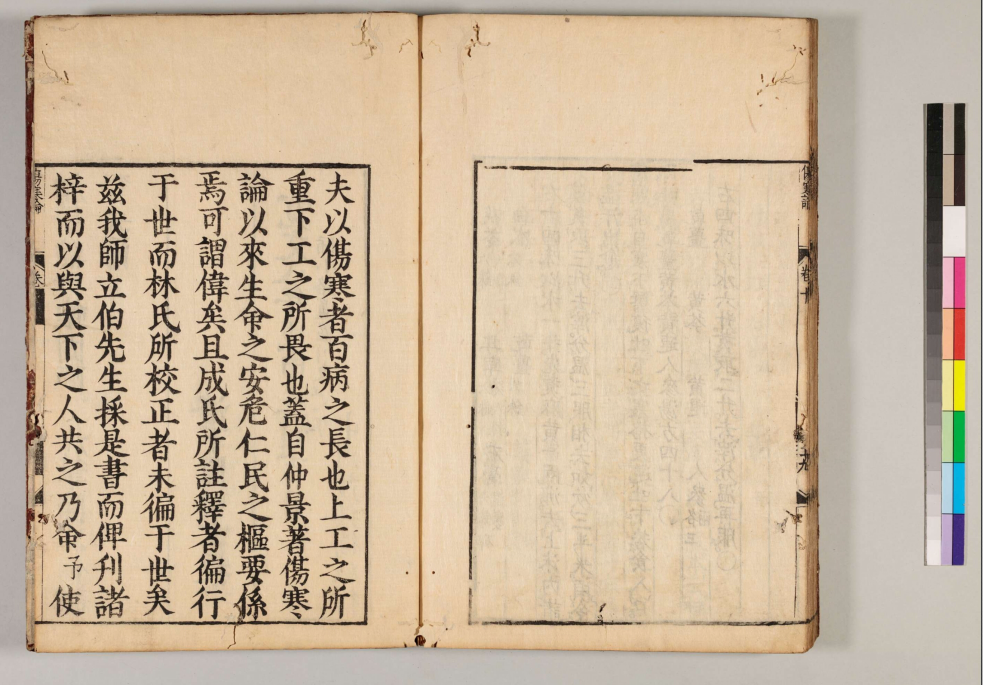 傷寒論 卷十 十九
夫以傷寒者百病之長也上工之所
重下工之所畏也蓋自仲景著傷寒
論以來生命之安危仁民之樞要係
焉可謂偉矣且成氏所註釋者徧行
于世而林氏所校正者未徧于世矣
玆我師立伯先生採是書而俾刋諸
梓而以與天下之人共之乃命予使
傷寒論 卷